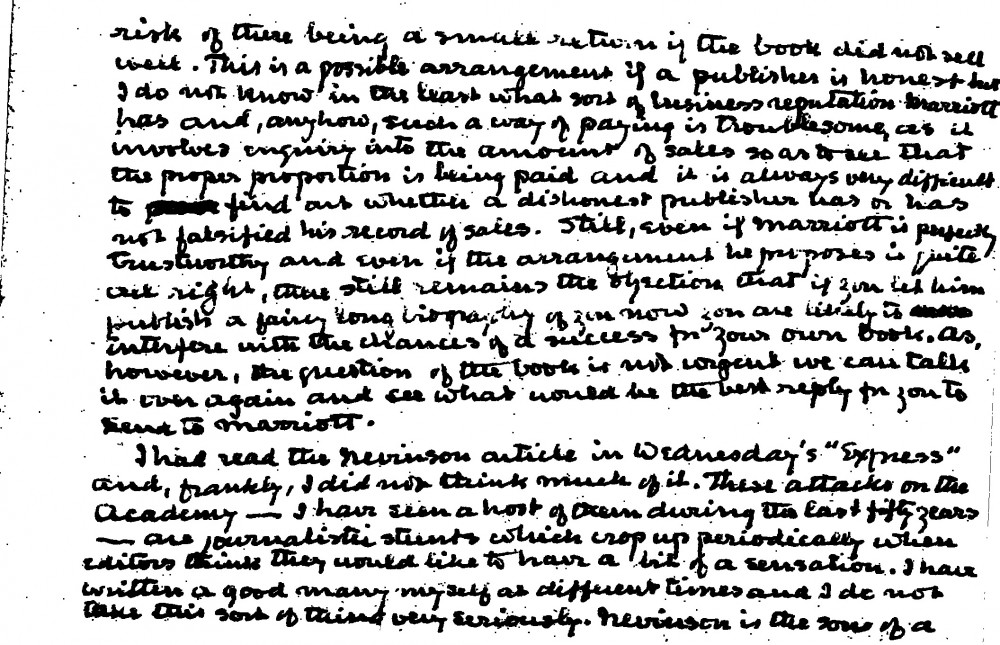 risk of there being a small return if the book did not sell
well. This is a possible arrangement if a publisher is honest but
I do not know in the least what sort of business reputation Marriott
has and, anyhow, such a way of paying is troublesome, as it
involves enquiry into the amount of sales so as to see that
the proper proportion is being paid and it is always very difficult
to find out whether a dishonest publisher has or has
not falsified his record of sales. Still, even if Marriott is perfectly
trustworthy and even if the arrangement he proposes is quite
all right, there still remains the objection that if you let him
publish a fairly long biography of you now you are likely to
interfere with the chances of a success for your own book. As,
however, the question of the book is not urgent we can talk
it over again and see what would be the best reply for you to
send to Marriott.
I had read the Nevinson article in Wednesday's "Express"
and, frankly, I did not think much of it. These attacks on the
Academy — I have seen a host of them during the last fifty years
— are journalistic stunts which crop up periodically when
editors think they would like to have a bit of a sensation. I have
written a good many myself at different times and I do not
take this sort of thing very seriously. Nevinson is the son of a